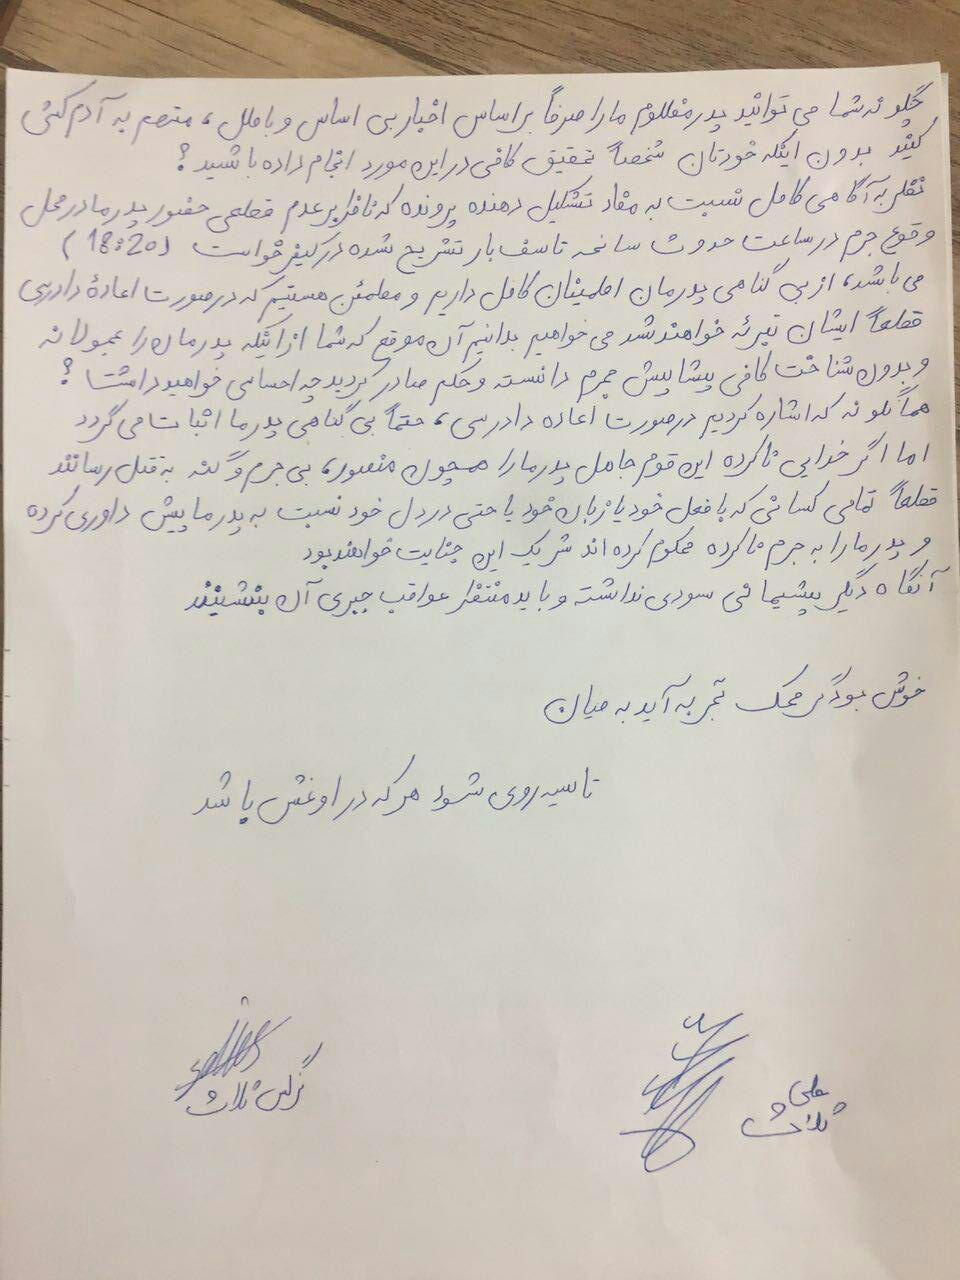 چگونه شما می توانید پدر مظلوم ما را صرفاً بر اساس اخبار بی اساس و باطل، متهم به آدم کشی
کنید بدون اینکه خودتان شخصاً تحقیق کافی در این مورد انجام داده باشید؟
نظر به آگاهی کامل نسبت به مفاد تشکیل دهنده پرونده که ناظر بر عدم قطعی حضور پدر ما در محل
وقوع جرم در ساعت حدوث سانحه تاسف بار تشریح شده در کیفرخواست (18:20)
می باشد، از بی گناهی پدرمان اطمینان کامل داریم و مطمئن هستیم که در صورت اعادهٔ دادرسی
قطعاً ایشان تبرئه خواهند شد می خواهیم بدانیم آن موقع که شما از اینکه پدرمان را عجولانه
و بدون شناخت کافی پیشاپیش مجرم دانسته و حکم صادر کردید چه احساسی خواهید داشت؟
همانگونه که اشاره کردیم در صورت اعاده دادرسی، حتماً بی گناهی پدر ما اثبات می گردد
اما اگر خدایی ناکرده این قوم جاهل پدر ما را همچون منصور، بی جرم و گنه به قتل رسانند
قطعاً تمامی کسانی که با فعل خود یا زبان خود یا حتی در دل خود نسبت به پدر ما پیش داوری کرده
و پدر ما را به جرم ناکرده محکوم کرده اند شریک این جنایت خواهند بود
آنگاه دیگر پشیمانی سودی نداشته و باید منتظر عواقب جبری آن بنشینند
خوش بود گر محک تجربه آید به میان
تا سیه روی شود هر که در او غش باشد
علی
ثلاث
نرگس ثلاث